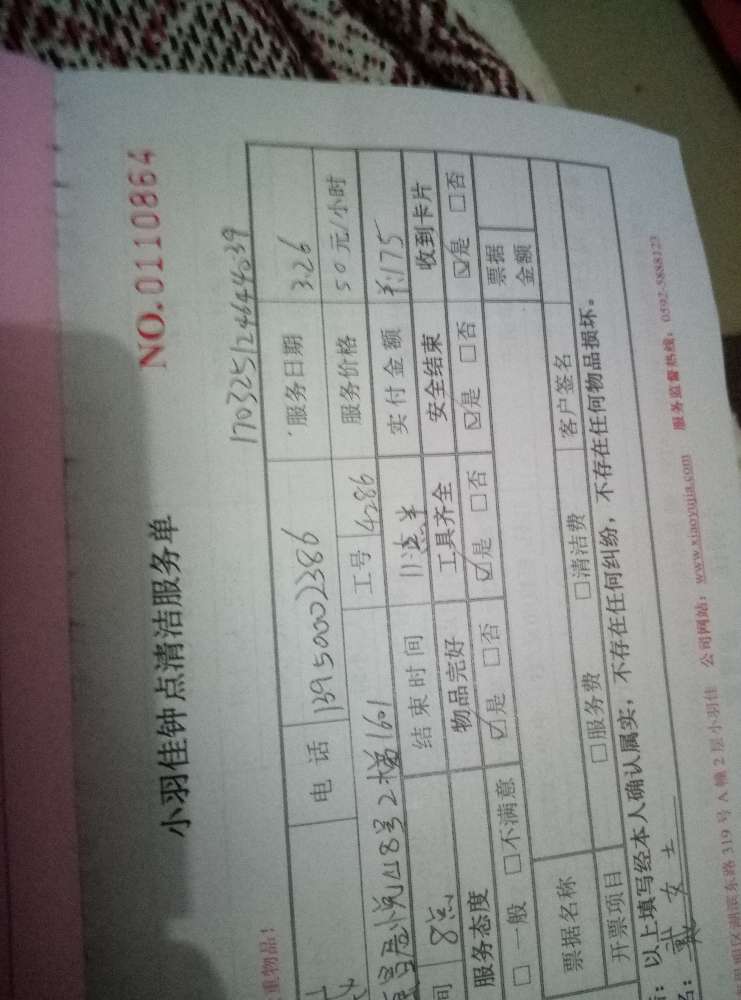 小羽佳钟点清洁服务单
NO.0110864
重物品！
170325124644039
电 话 13950002386 服务日期 3.26
18号2梯1601 工号 4286 服务价格 50元/小时
间 8点 结束时间 11点半 实付金额 175
服务态度 物品完好 工具齐全 安全结束 收到卡片
□一般 □不满意 ☑是 □否 ☑是 □否 ☑是 □否 ☑是 □否
票据名称 票据金额
开票项目 □服务费 □清洁费 客户签名
：以上填写经本人确认属实，不存在任何纠纷，不存在任何物品损坏。
名：戴女士
湖滨东路 319 号 A 幢 2 层小羽佳 公司网站：www.xiaoyujia.com 服务监督热线：0592-5888123